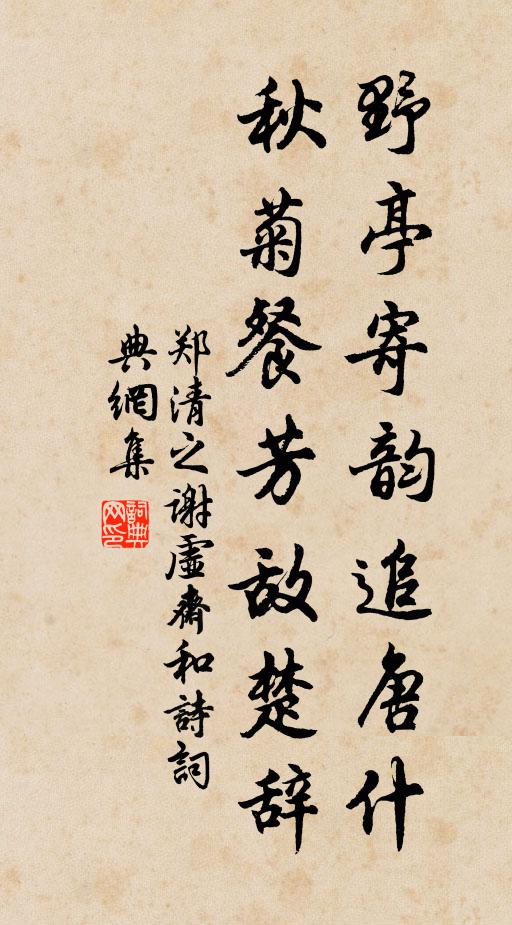 野亭寄韵追唐什
秋菊餐芳敌楚辞
郑清之谢虚斋和詩詞
典網集
詞典网印